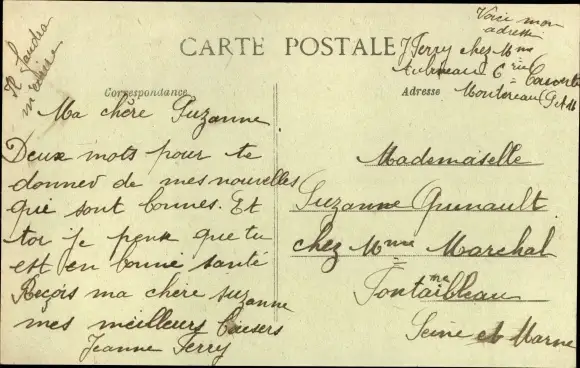 Il faudra
m'écrire
Voici mon
adresse
CARTE POSTALE
J Ferry chez Mme
Correspondance
Adresse
Montereau (S M
Ma chère Suzanne
Deux mots pour te
donner de mes nouvelles
qui sont bonnes. Et
toi je pense que tu
est en bonne santé
Reçois ma chère Suzanne
mes meilleurs baisers
Jeanne Ferry
Mademoiselle
Suzanne Grunault
chez Mme Marchal
Fontaibleau
Seine et Marne